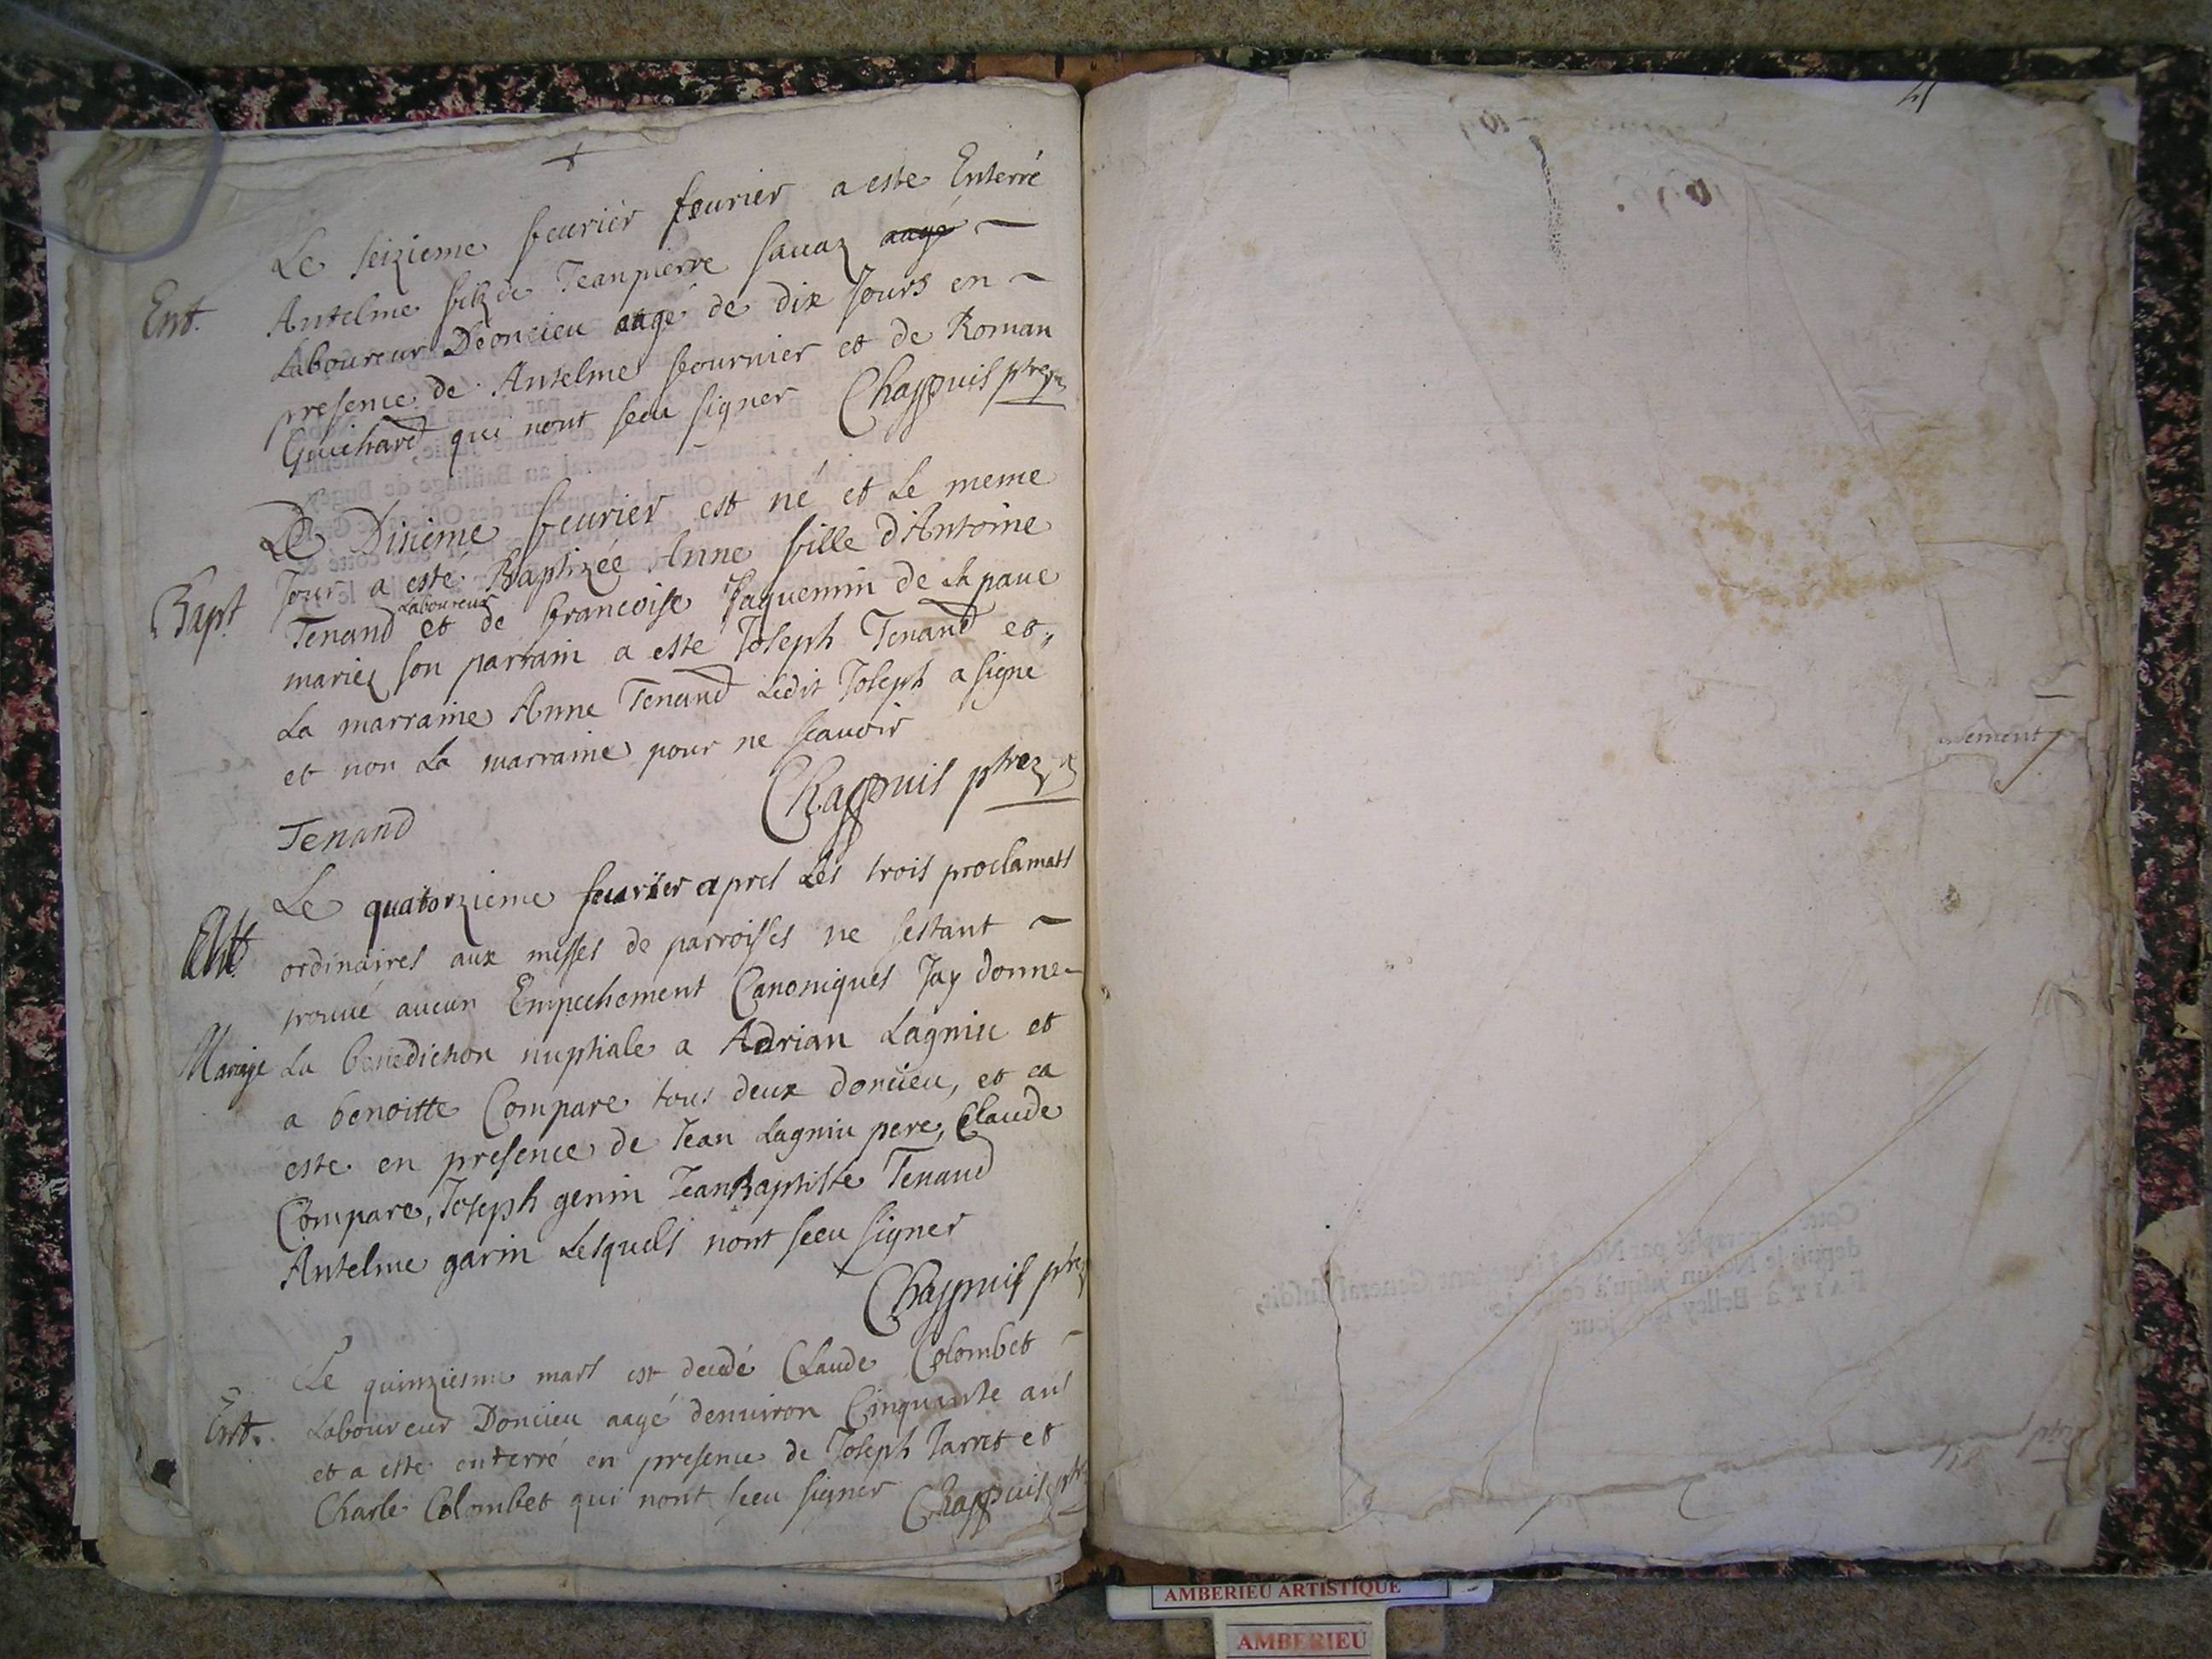 Le seizieme feurier feurier a este Enterré
Ent. Antelme filz de Jeanpierre sauaz aagé
Laboureur Deoncieu aagé de dix Jours en
presence de Antelme fournier et de Roman
Guichard qui nont sceu signer Chappuis ptre
Le Disieme feurier est né et Le meme
Jour a esté Baptizée Anne fille d'Antoine
Bapt Tenand Laboureur et de francoise Jaquemin de La paue
mariez son parrain a esté Joseph Tenand et
La marraine Anne Tenand Ledit Joseph a signé
et non La marraine pour ne scauoir
Chappuis ptre
Tenand
Le quatorzieme feurier apres Les trois proclamats
Ent ordinaires aux messes de parroisses ne sestant
trouué aucun Empechement Canoniques Jay donne
Mariage La benediction nuptiale a Adrian Lagniu et
a benoitte Compare tous deux doncieu, et ca
este en presence de Jean Lagniu pere, Claude
Compare, Joseph genin Jean Baptiste Tenand
Antelme garin Lesquels nont sceu signer
Chappuis ptre
Le quinziesme mars est decedé Claude Colombet
Ent. Laboureur Doncieu aagé denuiron Cinquante ans
et a este enterré en presence de Joseph Jarret et
Charle Colombet qui nont sceu signer Chappuis ptre
AMBERIEU ARTISTIQUE
AMBERIEU